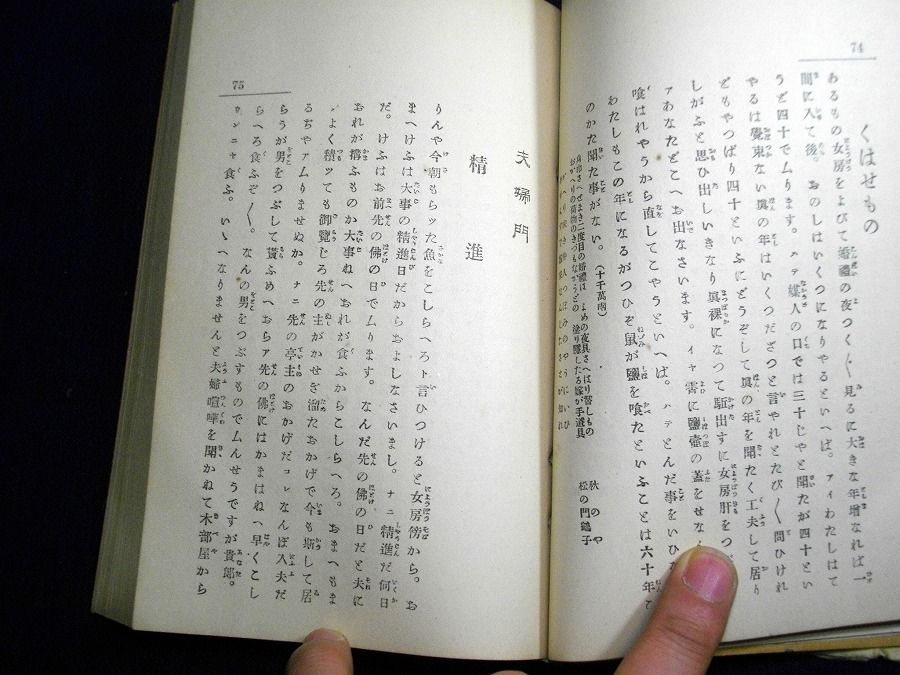 74
くはせもの
あるもの女房をよびて婚禮の夜つく〴〵見るに大きな年増なれば一
間に入て後。おのしはいくつになりやるといへば。アイわたしはて
うど四十でムります。ハァ媒人の口では三十じやと聞たが四十とい
やるは覺束ない眞の年はいくつだぞつと言やれとたび〳〵問ひけれ
どもやつぱり四十といふにどうぞして眞の年を聞たく工夫して居り
しがふと思ひ出しいきなり眞裸になつて駈出すに女房肝をつ
アあなたどこへお出なさいます。イヤ雪に鹽壺の蓋をせな
喰はれやうから直してこやうといへば。ハテとんだ事をいひな
わたしもこの年になるがつひぞ鼠が鹽を喰たといふことは六十年こ
のかた聞た事がない。(十千萬両)
二度目の婚禮は よめの夜具さへはり替しもの 秋のや
おかへりの荷物のきづもなかうどの 塗り隱したる嫁が手道具 松の門鶴子
75
夫婦門
精進
りんや今朝もらッた魚をこしらへろト言ひつけると女房傍から。お
まへけふは大事の精進日だからおよしなさいまし。ナニ精進だ何日
だ。けふはお前先の佛の日でムります。なんだ先の佛の日だと夫に
おれが搆ふものか大事ねへおれが食ふからこしらへろ。おまへもま
アよく積ッても御覽じろ先の主がかせぎ溜たおかげで今も斯して居
るぢやアムりませぬか。ナニ先の亭主のおかげだコレなんぼ入夫だ
らうが男をつぶして貰ふめへおらア先の佛にはかまはねへ早くこし
らへろ食ふぞ〳〵。なんの男をつぶすものでムんせうですが貴郎。
ウンニャ食ふ。いゝへなりませんと夫婦喧嘩を聞かねて木部屋から